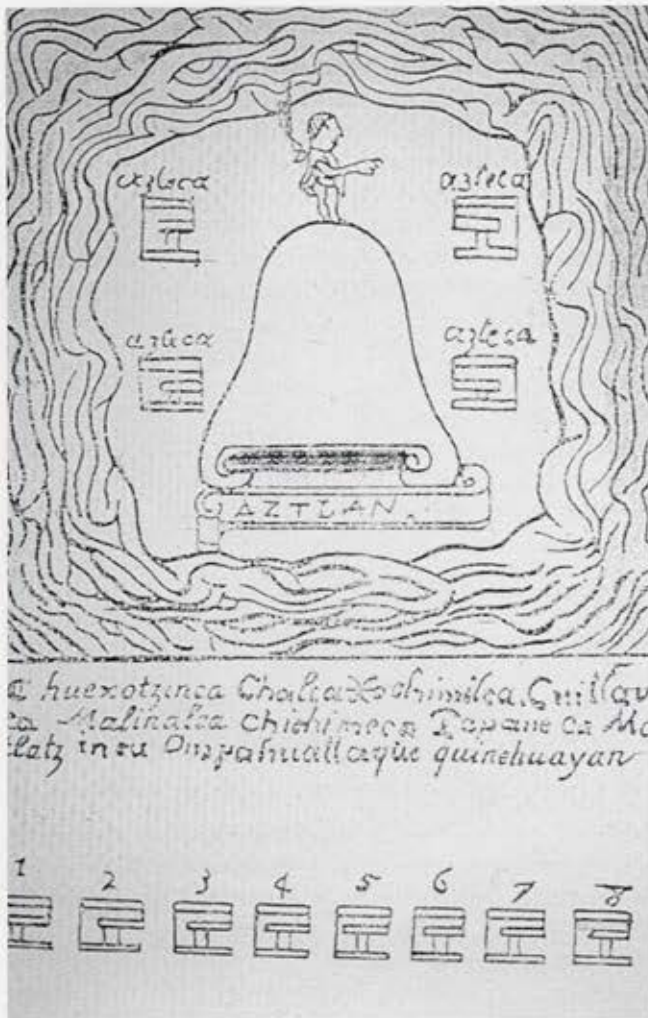 azteca azteca
azteca azteca
AZTLAN
huexotzinca Chalca Xochimilca. Cuitlav
ca Malinalca Chichimeca Tepaneca Ma
tlatzinca Ompahuallaque quinehuayan
1 2 3 4 5 6 7 8